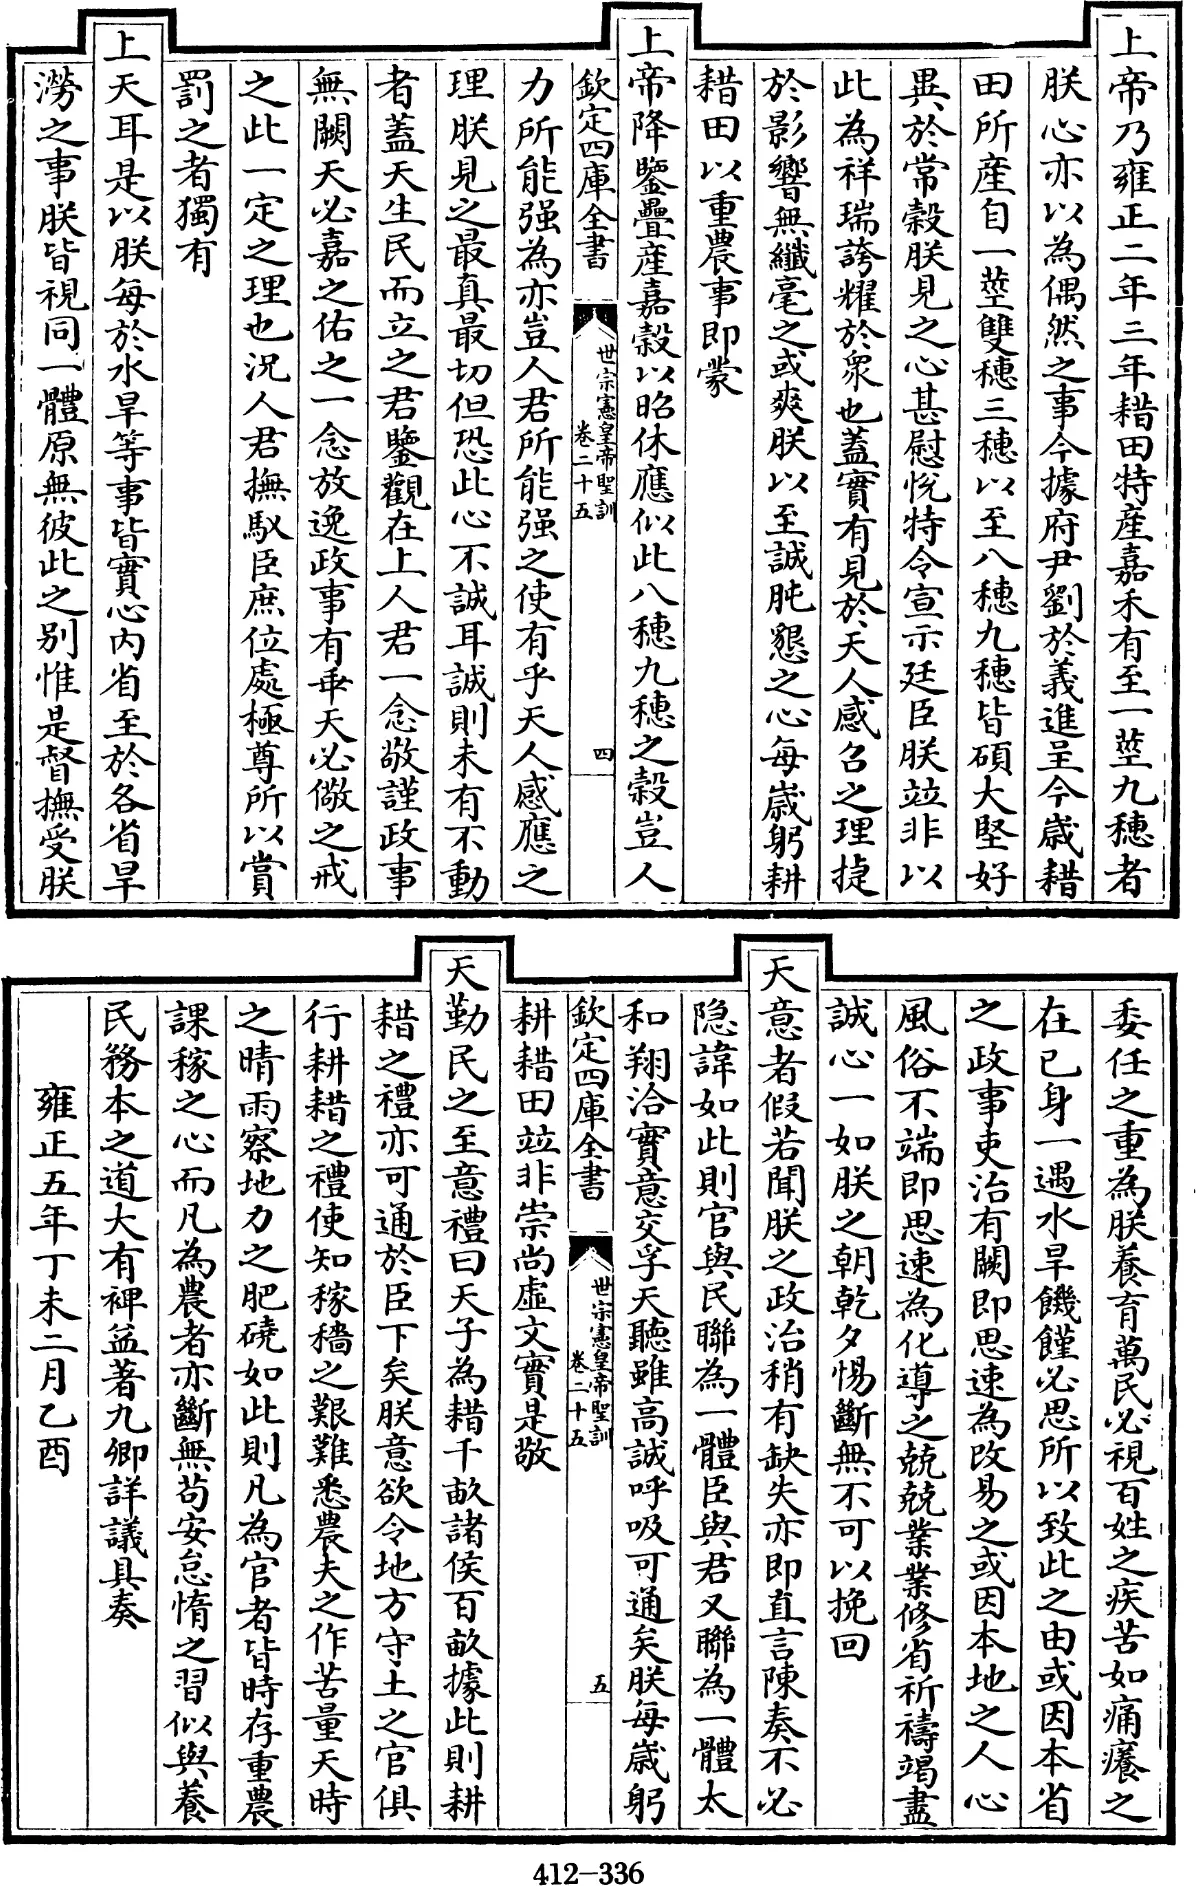 上帝乃雍正二年三年耤田特産嘉禾有至一莖九穗者
朕心亦以為偶然之事今據府尹劉於義進呈今歲耤
田所産自一莖雙穗三穗以至八穗九穗皆碩大堅好
異於常穀朕見之心甚慰恱特令宣示廷臣朕竝非以
此為祥瑞誇耀於衆也蓋實有見於天人感召之理捷
於影響無纎毫之或爽朕以至誠肫懇之心每歲躬耕
耤田以重農事即蒙
上帝降鑒疊産嘉穀以昭休應似此八穗九穗之穀豈人
欽定四庫全書
世宗憲皇帝聖訓
卷二十五
四
力所能强為亦豈人君所能强之使有乎天人感應之
理朕見之最真最切但恐此心不誠耳誠則未有不動
者蓋天生民而立之君鑒觀在上人君一念敬謹政事
無闕天必嘉之佑之一念放逸政事有乖天必儆之戒
之此一定之理也況人君撫馭臣庶位處極尊所以賞
罰之者獨有
上天耳是以朕每於水旱等事皆實心内省至於各省旱
澇之事朕皆視同一體原無彼此之别惟是督撫受朕
委任之重為朕養育萬民必視百姓之疾苦如痌癢之
在已身一遇水旱饑饉必思所以致此之由或因本省
之政事吏治有闕即思速為改易之或因本地之人心
風俗不端即思速為化導之兢兢業業修省祈禱竭盡
誠心一如朕之朝乾夕惕斷無不可以挽回
天意者假若聞朕之政治稍有缺失亦即直言陳奏不必
隐諱如此則官與民聯為一體臣與君又聯為一體太
和翔洽實意交孚天聽雖高誠呼吸可通矣朕每歲躬
欽定四庫全書
世宗憲皇帝聖訓
卷二十五
五
耕耤田竝非崇尚虛文實是敬
天勤民之至意禮曰天子為耤千畝諸侯百畝據此則耕
耤之禮亦可通於臣下矣朕意欲令地方守土之官俱
行耕耤之禮使知稼穡之艱難悉農夫之作苦量天時
之晴雨察地力之肥磽如此則凡為官者皆時存重農
課稼之心而凡為農者亦斷無苟安怠惰之習似與養
民務本之道大有裨益著九卿詳議具奏
雍正五年丁未二月乙酉
412-336